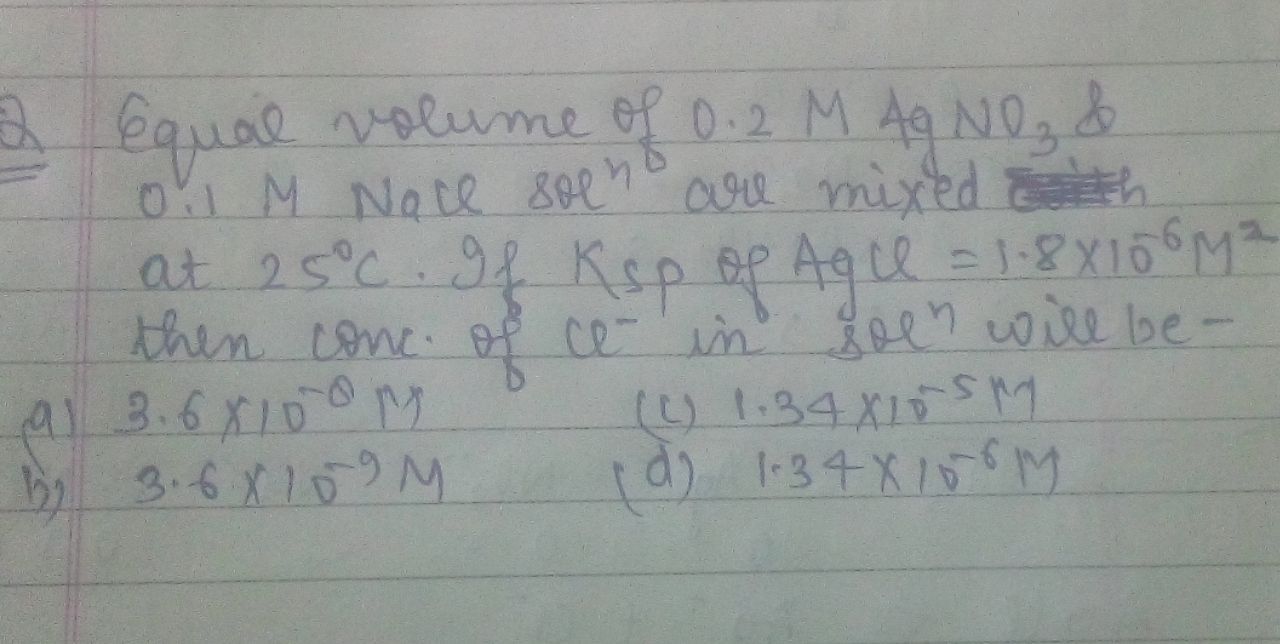 Q Equal volume of 0.2 M AgNO₃ &
0.1 M NaCl solⁿ are mixed
at 25°C. If Ksp of AgCl = 1.8×10⁻⁶M²
then conc. of Cl⁻ in solⁿ will be -
a) 3.6×10⁻⁸ M (c) 1.34×10⁻⁵M
b) 3.6×10⁻⁹ M (d) 1.34×10⁻⁶M